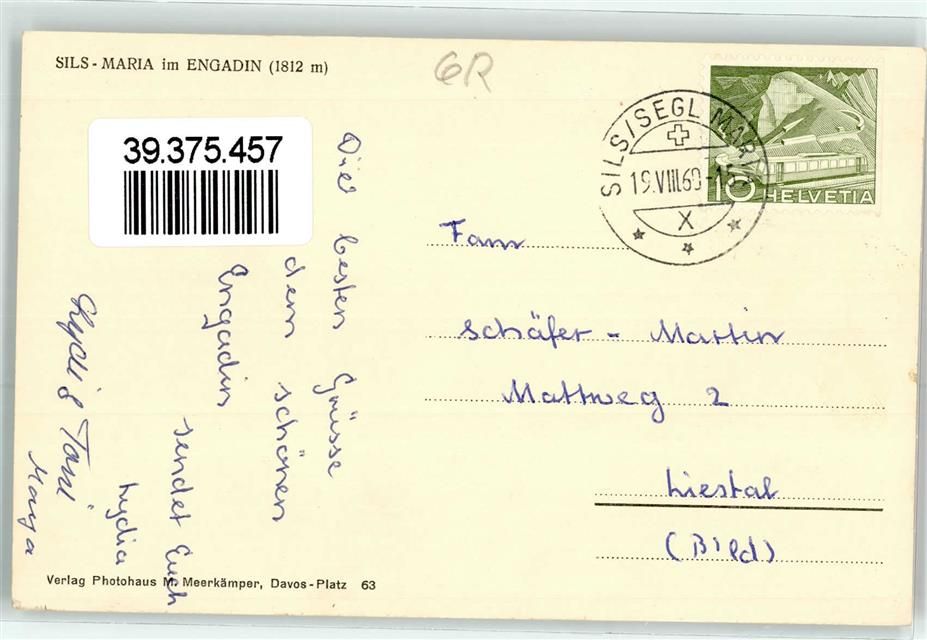 SILS - MARIA im ENGADIN (1812 m)
6R
39.375.457
SILS/SEGL MARIA
19.VIII.60-15
X
10 HELVETIA
Die besten Grüsse
dem schönen
Engadin
sendet Euch
Lydia
Toni
Maya
Fam
Schäfer - Martin
Mattweg 2
Liestal
(Bld)
Verlag Photohaus M. Meerkämper, Davos-Platz 63